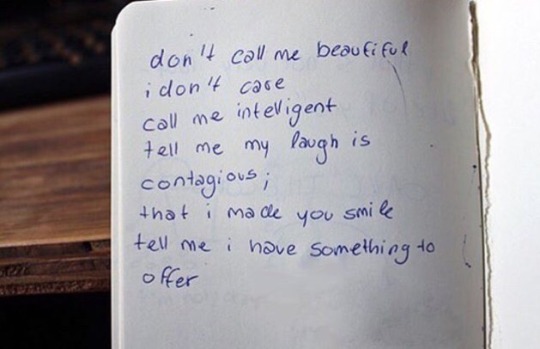 don't call me beautiful
i don't care
call me intelligent
tell me my laugh is
contagious;
that i made you smile
tell me i have something to
offer